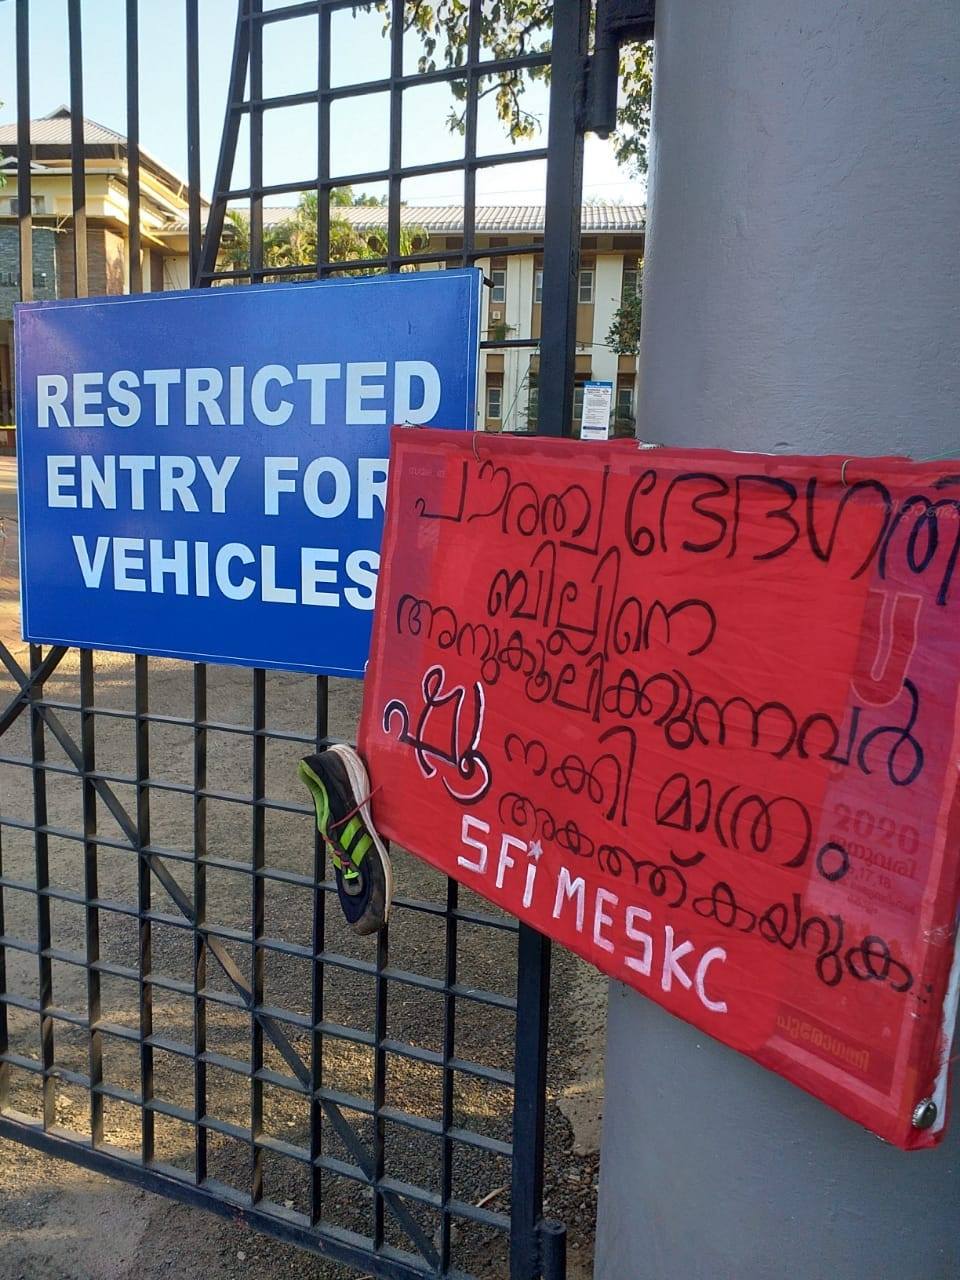 RESTRICTED
ENTRY FOR
VEHICLES
പൗരത്വ ഭേദഗതി
ബില്ലിനെ
അനുകൂലിക്കുന്നവർ
ഷൂ നക്കി മാത്രം
അകത്ത് കയറുക..
SFI MESKC
2020